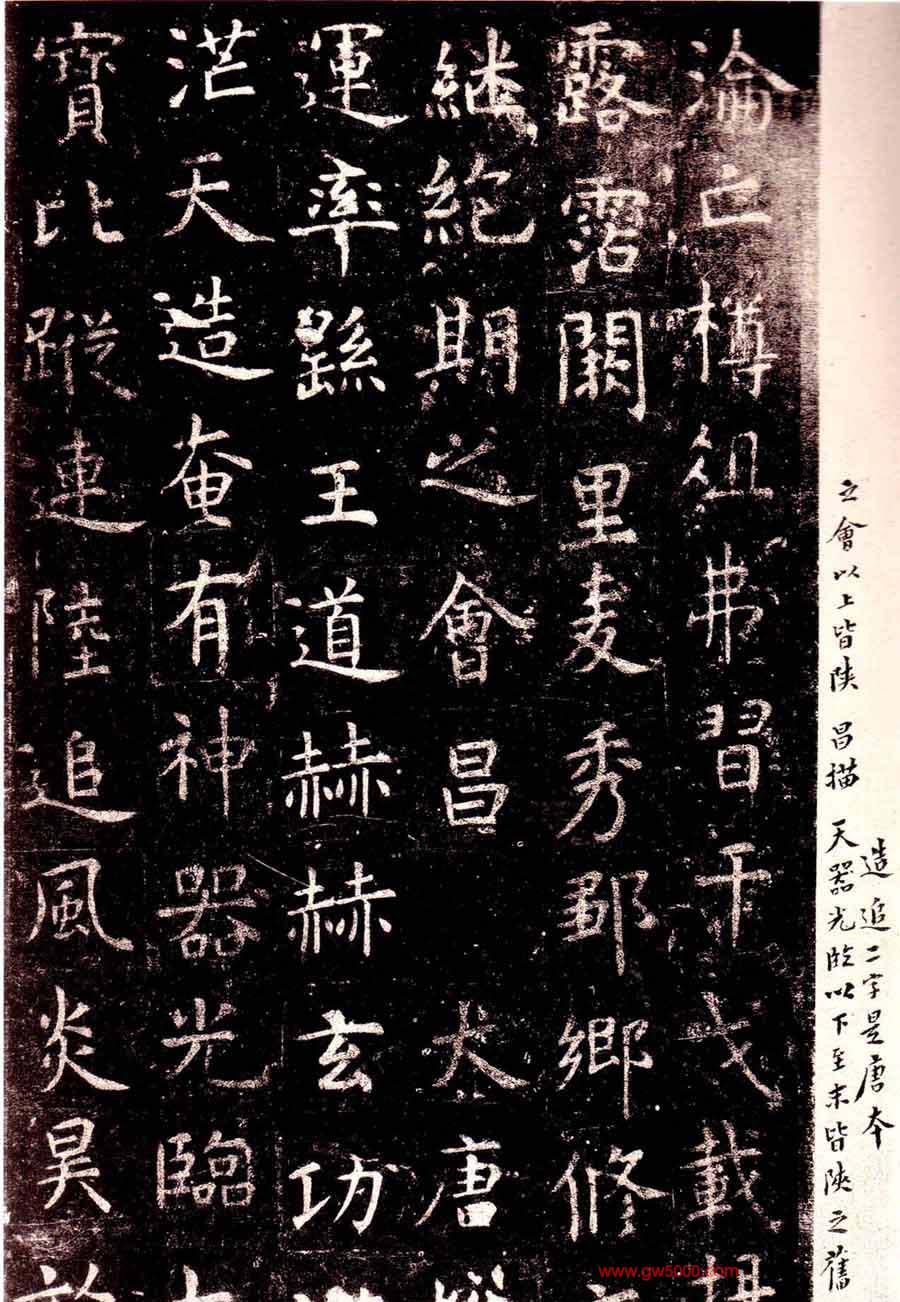 造追二字是唐本
之會以上皆陝 昌描 天器光臨以下至末皆陝之舊
淪亡樽俎弗習干戈載
露霑闕里麥秀鄒鄉修
繼絕期之會昌 大唐
運率繇王道赫赫玄功
茫天造奄有神器光臨
寶比蹤連陸追風炎昊
www.gw5000.com